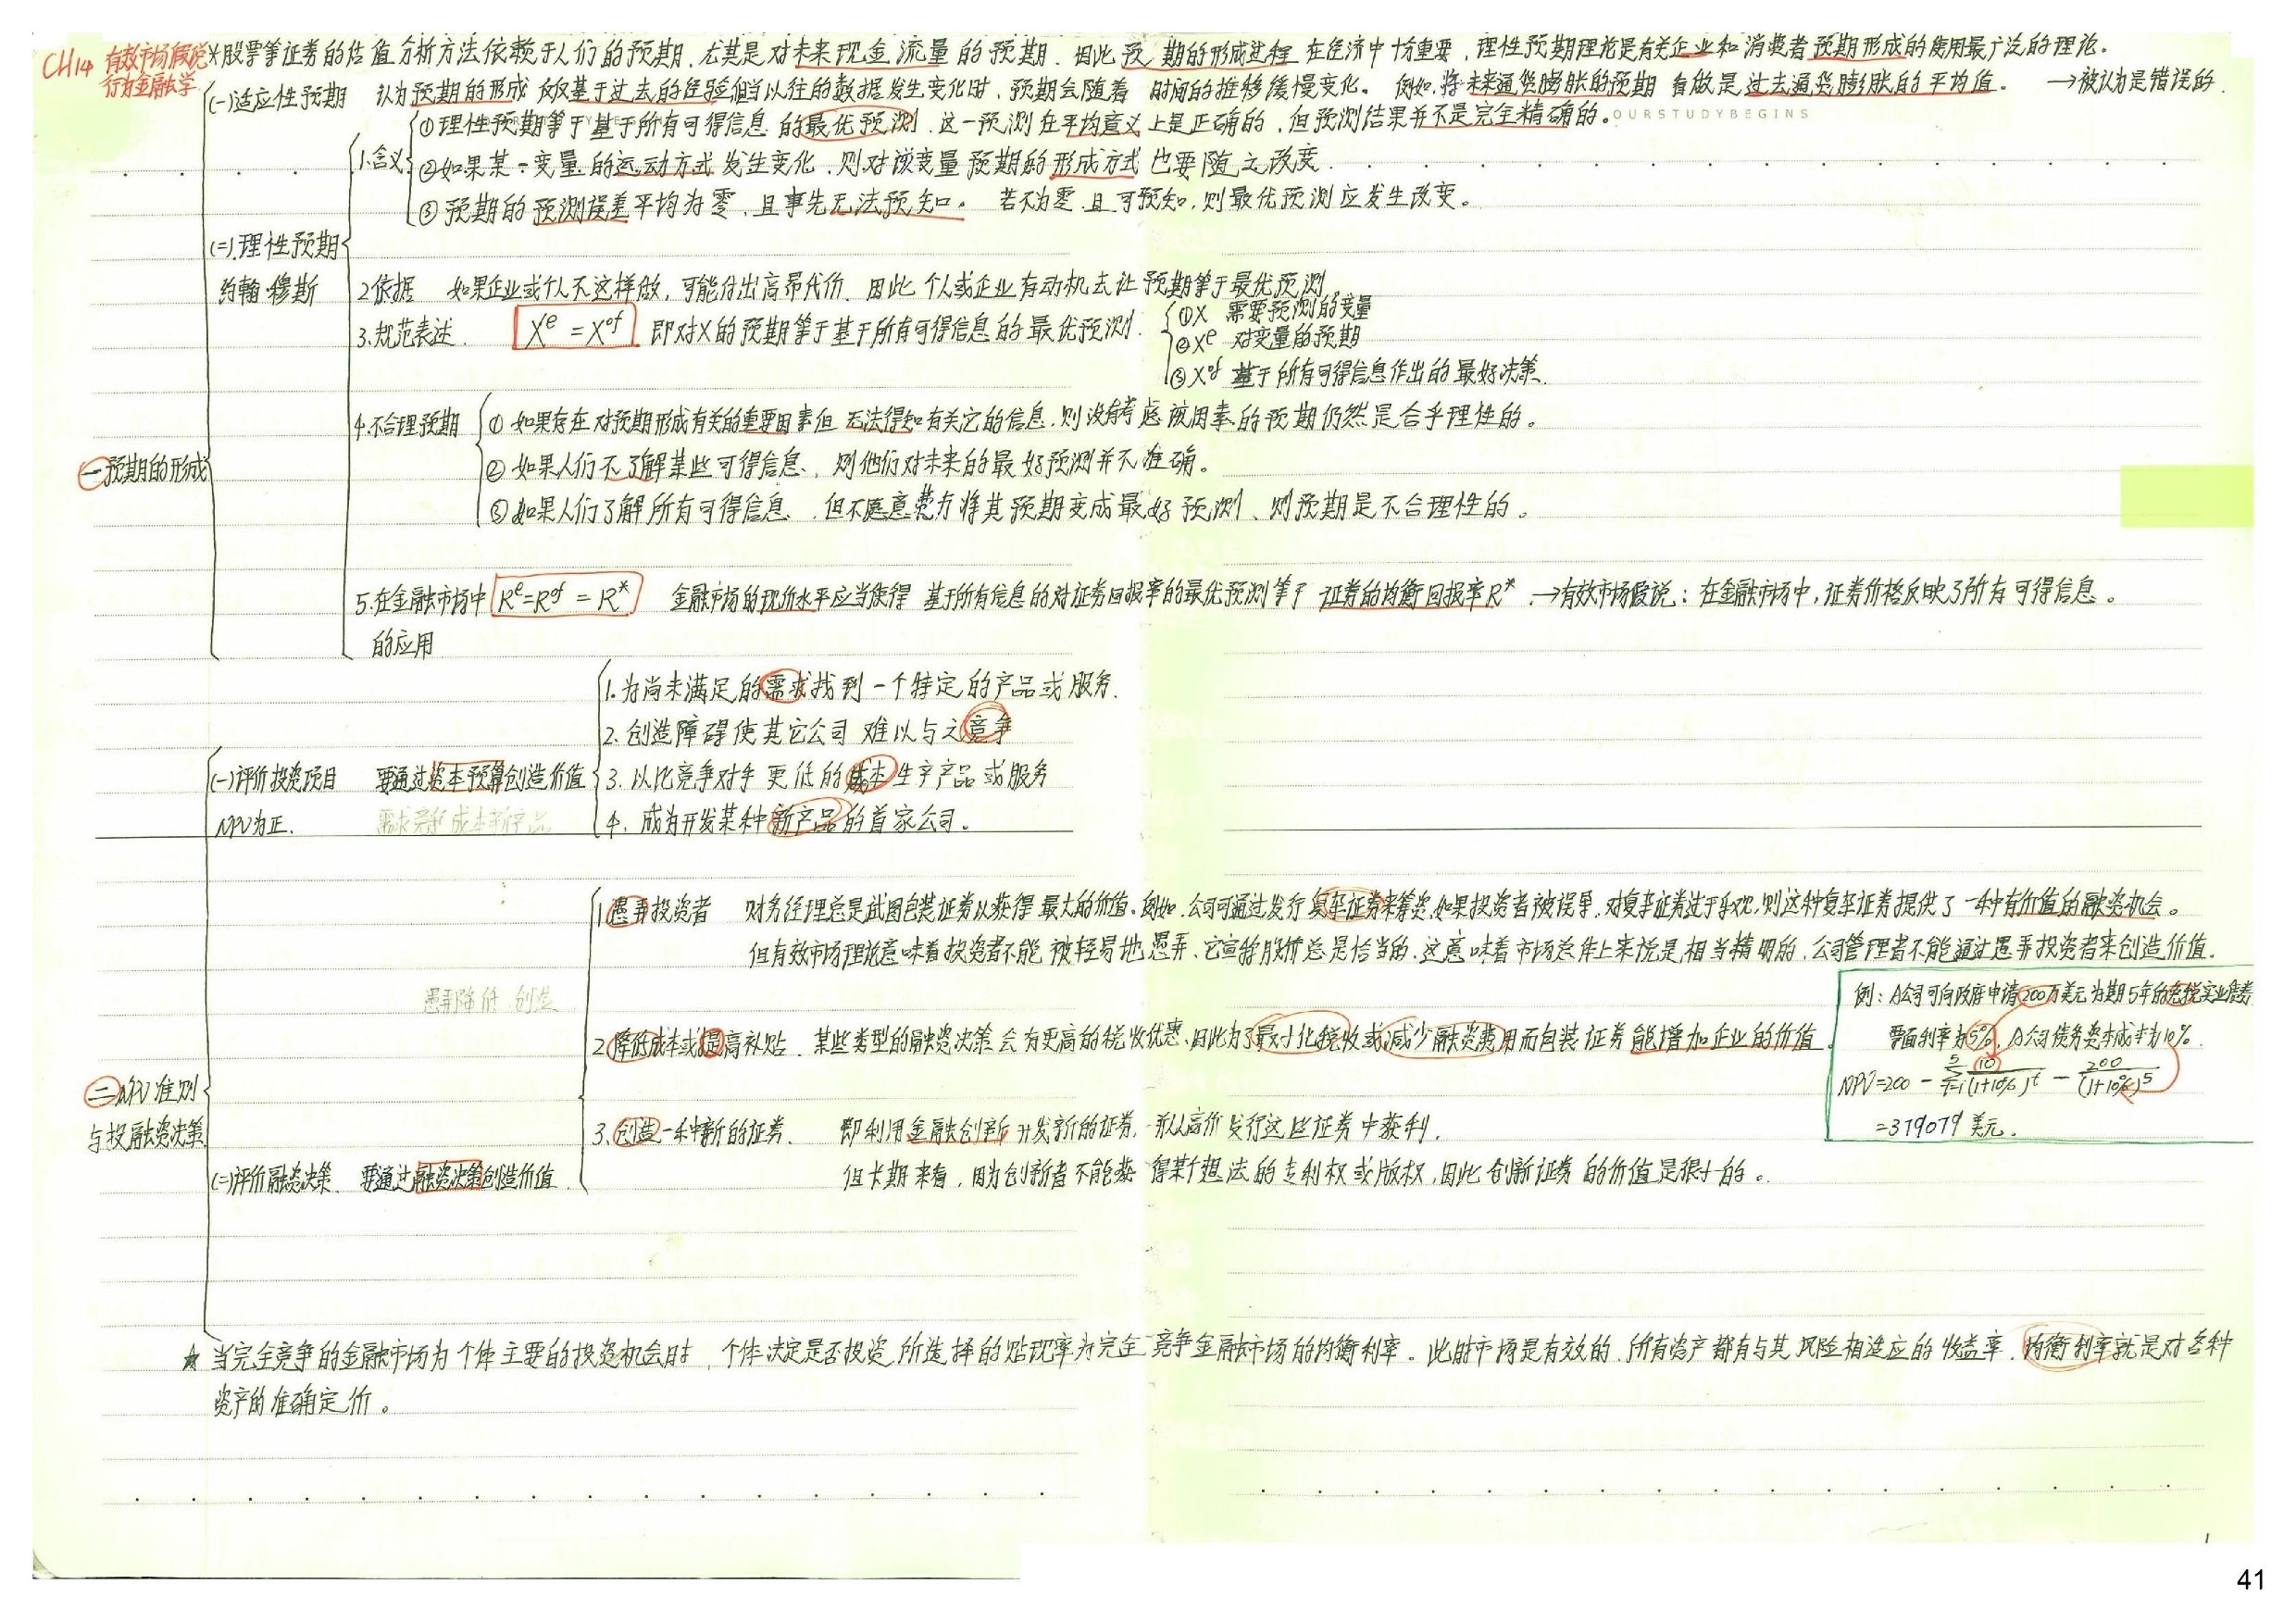 CH14 有效市场假说
行为金融学
*股票等证券的估值分析方法依赖于人们的预期,尤其是对未来现金流量的预期.因此预期的形成过程在经济中十分重要,理性预期理论是有关企业和消费者预期形成的使用最广泛的理论。
(一)适应性预期 认为预期的形成仅仅基于过去的经验,但当以往的数据发生变化时,预期会随着时间的推移缓慢变化。例如,将未来通货膨胀的预期看做是过去通货膨胀的平均值。 →被认为是错误的.
OURSTUDYBEGINS
1.含义
①理性预期等于基于所有可得信息的最优预测.这一预测在平均意义上是正确的,但预测结果并不是完全精确的。
②如果某一变量的运动方式发生变化,则对该变量预期的形成方式也要随之改变.
③预期的预测误差平均为零、且事先无法预知。 若不为零且可预知,则最优预测应发生改变。
(二)理性预期
约翰·穆斯
2依据 如果企业或个人不这样做,可能付出高昂代价.因此个人或企业有动机去让预期等于最优预测
3.规范表述. Xᵉ=Xᵒᶠ 即对X的预期等于基于所有可得信息的最优预测.
①X 需要预测的变量
②Xᵉ 对变量的预期
③Xᵒᶠ 基于所有可得信息作出的最好决策.
4.不合理预期
①如果存在对预期形成有关的重要因素但无法得知有关它的信息,则没有考虑该因素的预期仍然是合乎理性的。
一 预期的形成
②如果人们不了解某些可得信息、则他们对未来的最好预测并不准确。
③如果人们了解所有可得信息、但不愿意费力将其预期变成最好预测、则预期是不合理性的。
5.在金融市场中 Rᵉ=Rᵒᶠ=R* 金融市场的现价水平应当使得基于所有信息的对证券回报率的最优预测等于证券的均衡回报率R*.→有效市场假说:在金融市场中,证券价格反映了所有可得信息。
的应用
1.为尚未满足的需求找到一个特定的产品或服务.
2.创造障碍使其它公司难以与之竞争
(一)评价投资项目 要通过资本预算创造价值
3.以比竞争对手更低的成本生产产品或服务
NPV为正. 需求竞争成本新产品
4.成为开发某种新产品的首家公司。
1愚弄投资者 财务经理总是试图包装证券以获得最大的价值.例如.公司可通过发行复杂证券来筹资,如果投资者被误导,对复杂证券过于乐观,则这种复杂证券提供了一种有价值的融资机会。
但有效市场理论意味着投资者不能被轻易地愚弄.它宣称股价总是恰当的.这意味着市场总体上来说是相当精明的,公司管理者不能通过愚弄投资者来创造价值.
愚弄降低 创造
例:A公司可向政府申请200万美元为期5年的免税实业债券
2.降低成本或提高补贴. 某些类型的融资决策会有更高的税收优惠.因此为了最小化税收或减少融资费用而包装证券能增加企业的价值.
票面利率为5%,A公司债务资本成本为10%.
NPV=200-∑(t=1→5) 10/(1+10%)ᵗ - 200/(1+10%)⁵
=379079美元.
二 NPV准则
与投融资决策
3.创造一种新的证券. 即利用金融创新开发新的证券,并以高价发行这些证券中获利.
(二)评价融资决策. 要通过融资决策创造价值.
但长期来看,因为创新者不能获得某个想法的专利权或版权,因此创新证券的价值是很小的。
★ 当完全竞争的金融市场为个体主要的投资机会时,个体决定是否投资所选择的贴现率为完全竞争金融市场的均衡利率。此时市场是有效的,所有资产都有与其风险相适应的收益率.均衡利率就是对各种
资产的准确定价。
41